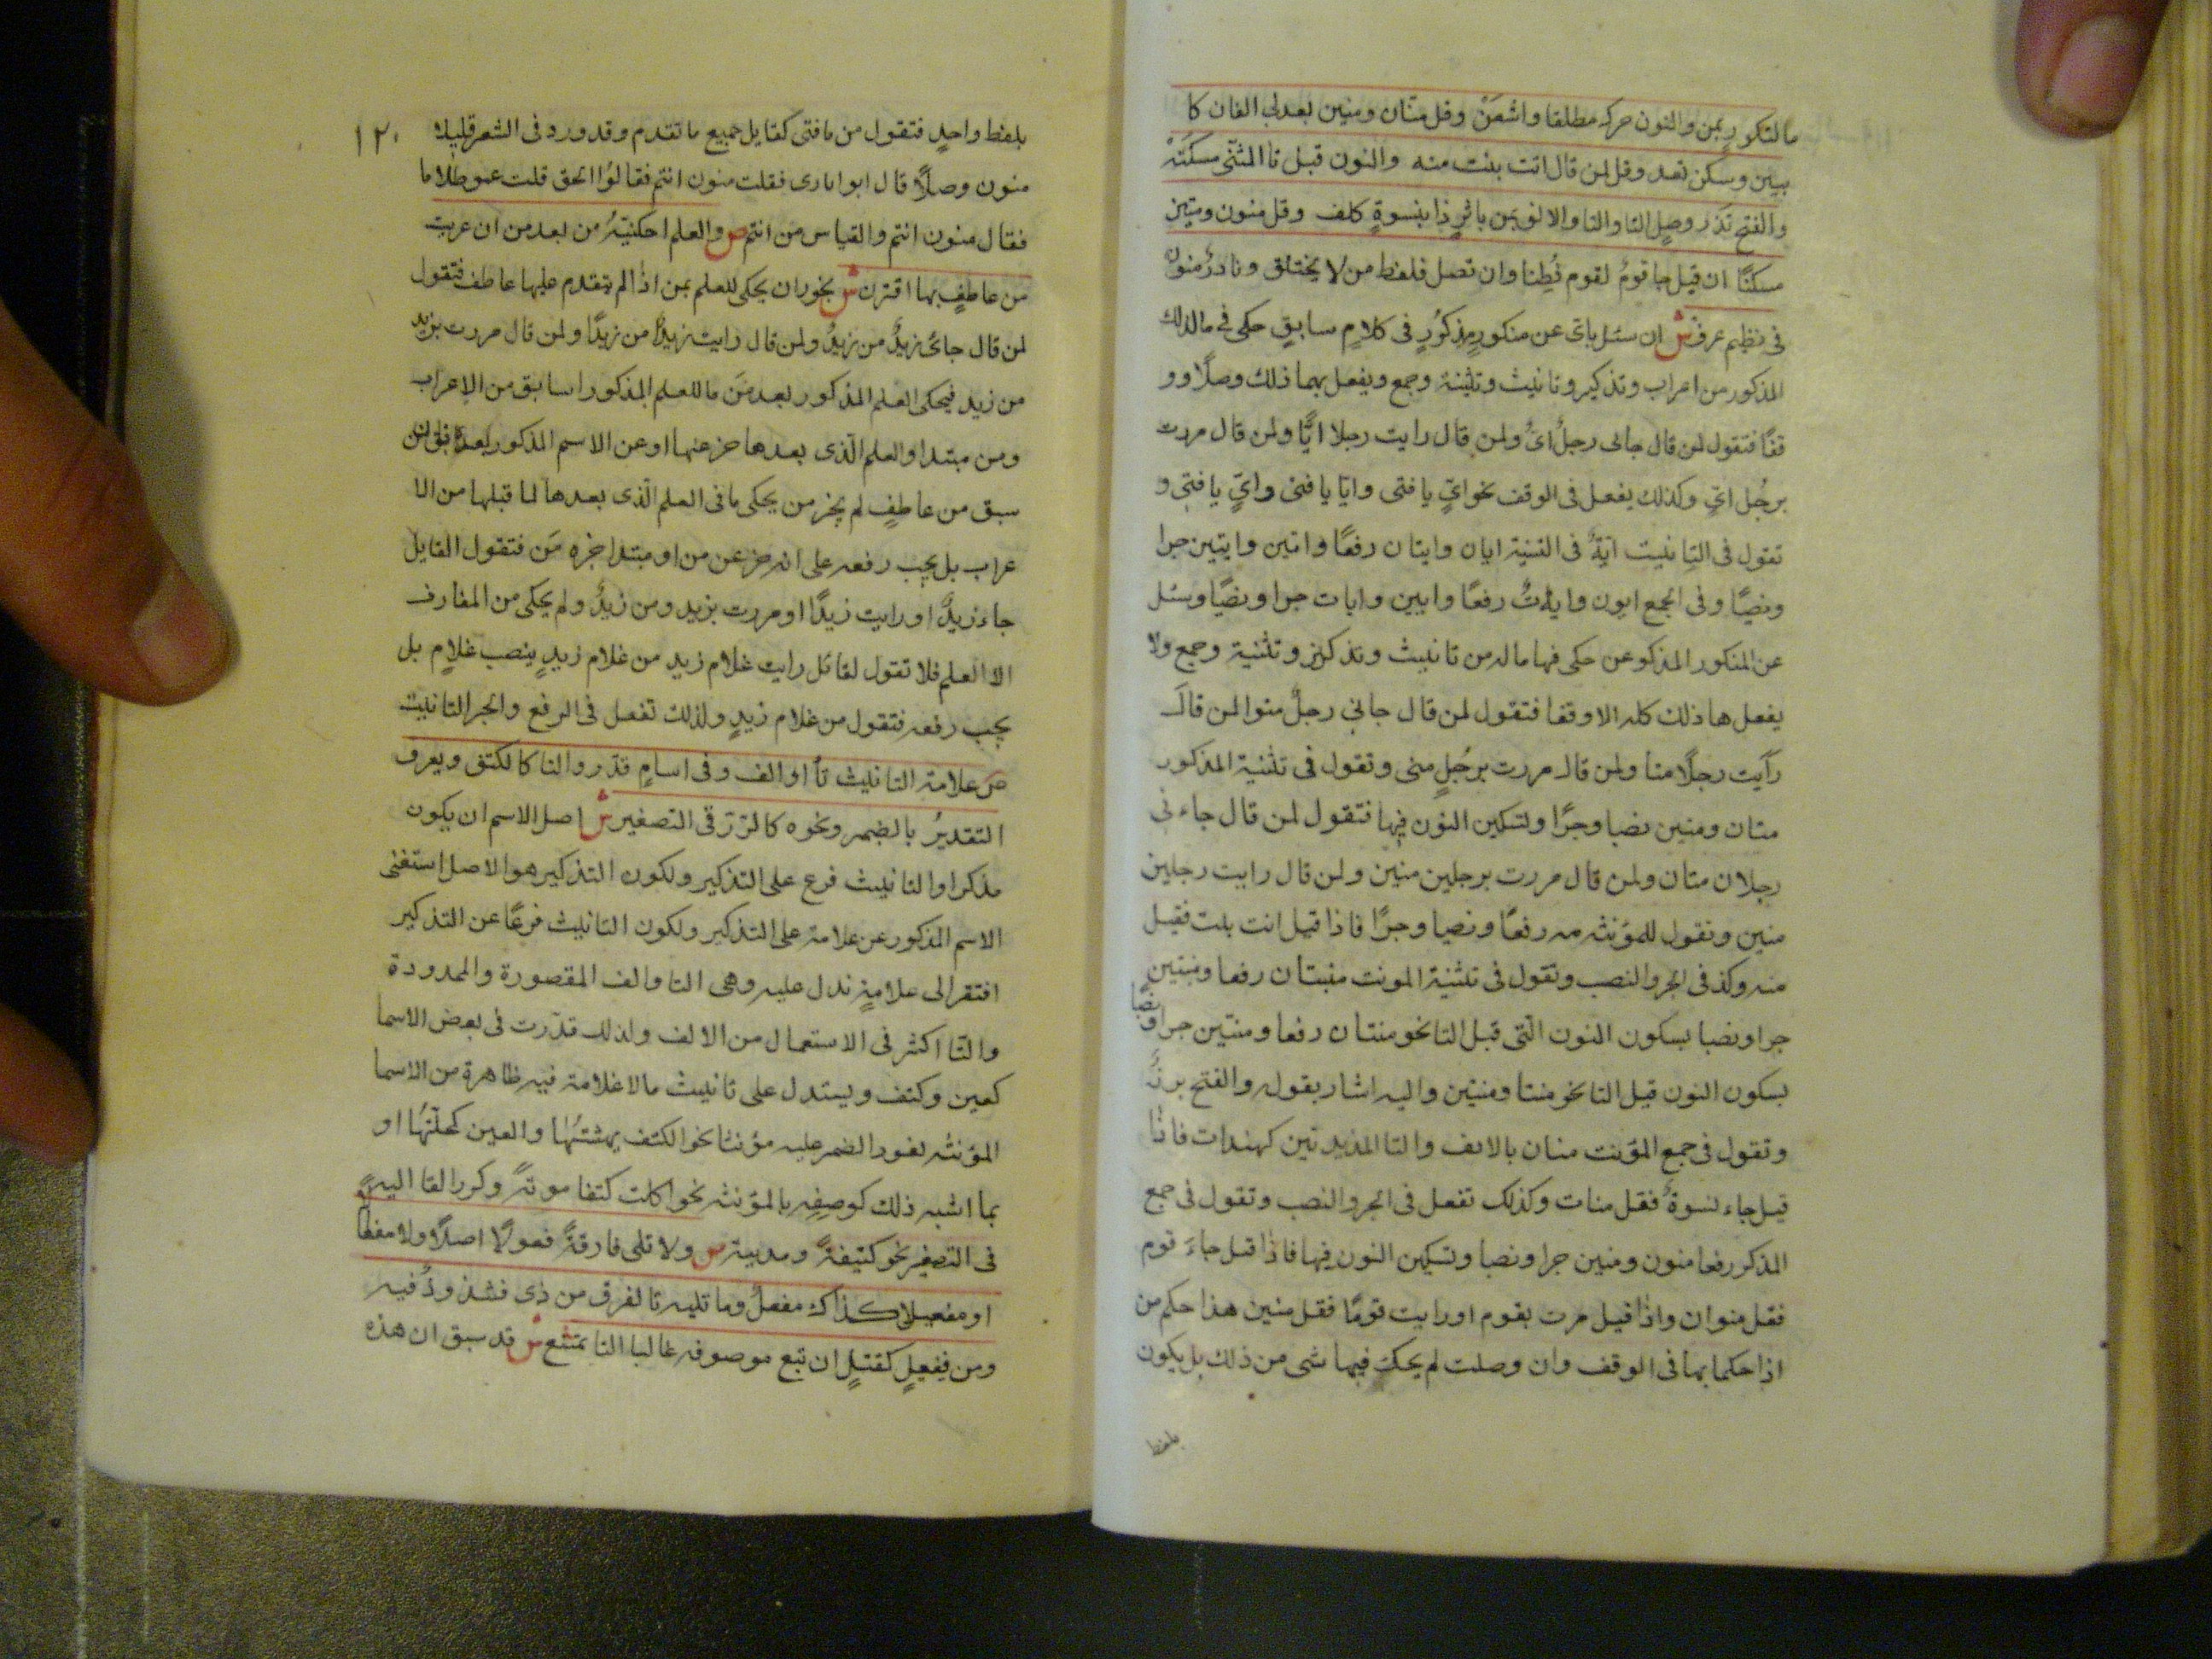 ما لتكور بمن والنون حركه مطلقا واشعن وقل منان ومنين بعد لى الفان كا
بين وسكن تعد وقل لمن قال اتت بنت منه والنون قبل تا المثنى مسكنة
والفتح نذر وصل التا والتا والالف بمن باثر ذا بنسوة كلف وقل منون ومنين
مسكنا ان قيل جا قوم لقوم فطنا وان تصل فلفظ من لا يختلف ونادر منون
فى نظم عرف ش ان سئل باى عن منكور مذكور فى كلام سابق حكى فى ما لذلك
المذكور من اعراب وتذكير وتانيث وتثنية وجمع ويفعل بهما ذلك وصلا وو
قفا فتقول لمن قال جانى رجل اى ولمن قال رايت رجلا ايا ولمن قال مررت
برجل اى وكذلك يفعل فى الوقف نحو اى يا فتى وايا يا فتى واى يا فتى و
تقول فى التانيت اية فى التنية ايان وايتان رفعا واتين وايتين جرا
ونصبا وفى الجمع ايون وايات رفعا وايين وايات جرا ونصبا وسئل
عن المنكور المذكو عن حكى فيها ماله من تانيث وتذكير وتثنية وجمع ولا
يفعل ها ذلك كله الا وقفا فتقول لمن قال جانى رجل منوا لمن قال
رآيت رجلا منا ولمن قال مررت برجل منى وتقول فى تثنية المذكور
منان ومنين نصبا وجرا ولتسكين النون فيها فتقول لمن قال جاءنى
رجلان منان ولمن قال مررت برجلين منين ولمن قال رايت رجلين
منين وتقول للمؤنثه مه رفعا ونصبا وجرا فاذا قيل انت بلت فقيل
منه وكذ فى الجر والنصب وتقول فى تثنية المونت منبتان رفعا ومنتين
جرا ونصبا بسكون النون التى قبل التا نحو منتان رفعا ومنتين جرا ونصبا
بسكون النون قيل التا نحو منتا ومنتين واليه اشار بقوله والفتح برنذ
وتقول فى جمع المؤنت منان بالالف والتا المذيدتين كهندات فاذا
قيل جاء نسوة فقل منات وكذلك تفعل فى الجر والنصب وتقول فى جمع
المذكر رفعا منون ومنين جرا ونصبا وتسكين النون فيها فاذا قيل جاء قوم
فقل منوان واذا قيل مرت بقوم اورايت قوما فقل منين هذا حكم من
اذا حكما بما فى الوقف وان وصلت لم يحك فيها شى من ذلك بل يكون
بلفظ
١٢٠
بلفظ واحد فتقول من ما فتى كقايل جميع ما تقدم وقد ورد فى الشعر قليلا
منون وصلا قال ابوا بارى فقلت منون انتم فقالوا الحق قلت عمو ظلاما
فقال منون انتم والقياس من انتم ص والعلم احكينه من بعد من ان عريت
من عاطف بها اقترن ش يجوز ان يحكى للعلم بمن اذا لم يتقدم عليها عاطف فتقول
لمن قال جائ زيد من زيد ولمن قال رايت زيدا من زيدا ولمن قال مررت بزيد
من زيد فيحكى العلم المذكور بعد من ما للعلم المذكور اسابق من الاعراب
ومن مبتدا والعلم الذى بعدها خر عنها او عن الاسم المذكور بعده فان
سبق من عاطف لم يجز من يحكى ما فى العلم الذى بعدها لما قبلها من الا
عراب بل يجب رفعه على انه خر عن من او مبتدا خره من فتقول القايل
جاء زيد او رايت زيدا او مررت بزيد ومن زيد ولم يحكى من المعارف
الا العلم فلا تقول لقائل رايت غلام زيد من غلام زيد ينصب غلام بل
يجب رفعه فتقول من غلام زيد ولذلك تفعل فى الرفع والجر التانيت
ص علامة التانيث تا او الف وفى اسام قدر والتا كا لكتف ويعرف
التقدير بالضمر ونحوه كالرّد فى التصغير ش اصل الاسم ان يكون
مذكرا والتانيث فرع على التذكير ولكون التذكير هو الاصل استغنى
الاسم المذكور عن علامة على التذكير ولكون التانيث فرعا عن التذكير
افتقر الى علامة ندل عليه وهى التا والف المقصورة والممدودة
والتا اكثر فى الاستعمال من الالف ولذلك قدرت فى بعض الاسما
كعين وكتف ويستدل على تانيث ما لا علامة فيه ظاهرة من الاسما
المؤنثه لعود الضمر عليه مؤنثا نحوا لكتف نهشتها والعين كحلتها او
بما اشبه ذلك كوصفه بالمؤنثه نحوا كلت كتفا موتة وكرر القا اليه
فى التصغير نحو كتيفة ومدبية ص ولا تلى فارقة فعولا اصلا ولا مفعا
او مفعيلا كذاك مفعل وما تليه تا لفرق من ذى فشذوذ فيه
ومن فعيل كقتل ان تبع موصوفه غالبا التا يمتنع ش قد سبق ان هذه